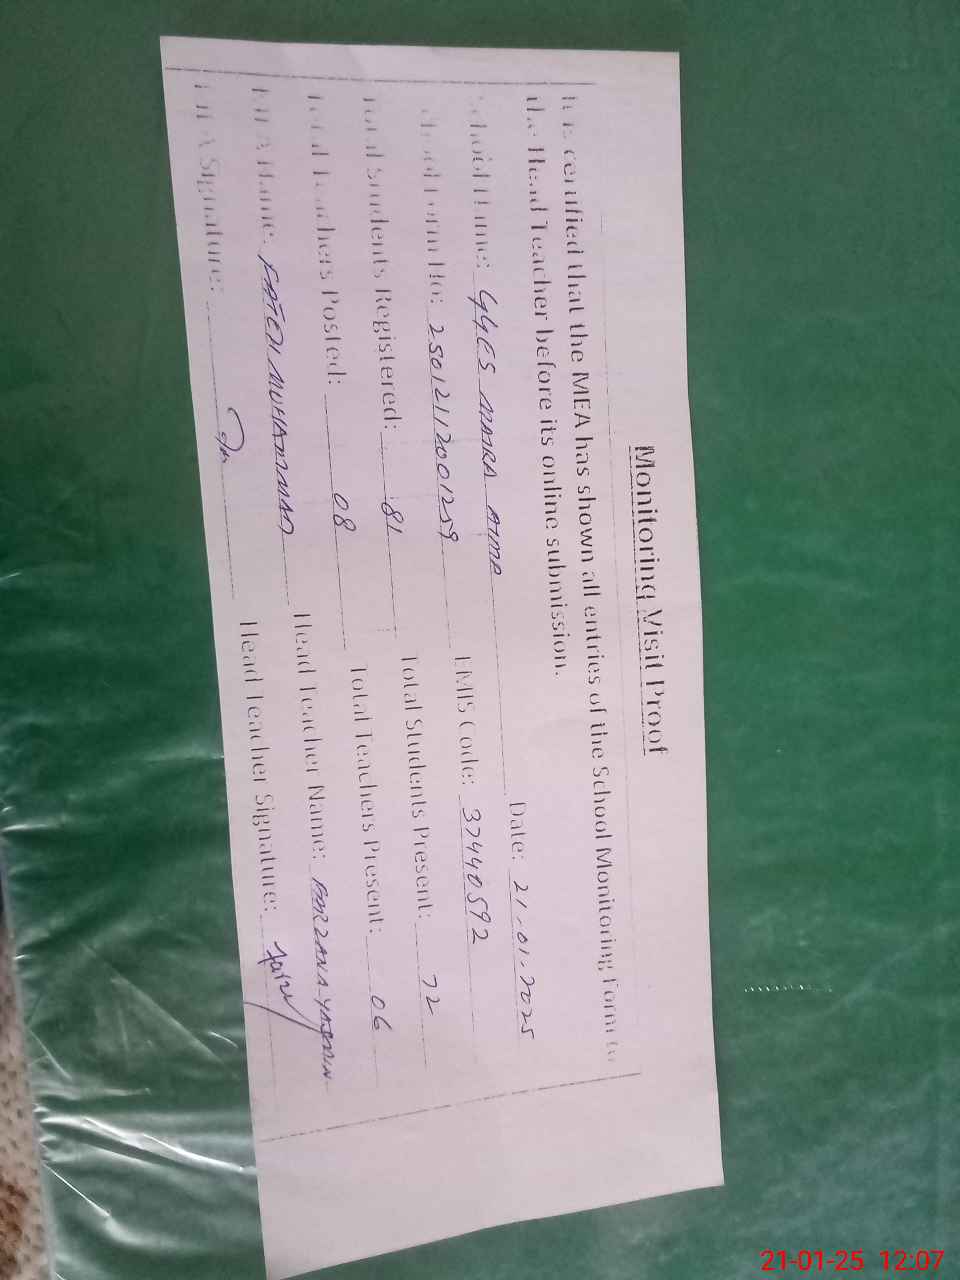 Monitoring Visit Proof
It is certified that the MEA has shown all entries of the School Monitoring Form to
the Head Teacher before its online submission.
School Name: GGES MAIRA Date: 21-01-2025
Form No: 25012112001259 EMIS Code: 37440592
Total Students Registered: 81 Total Students Present: 72
Total Teachers Posted: 08 Total Teachers Present: 06
Name: FATEH MUHAMMAD Head Teacher Name: FARZANA YASMIN
Signature: Head Teacher Signature:
21-01-25 12:07